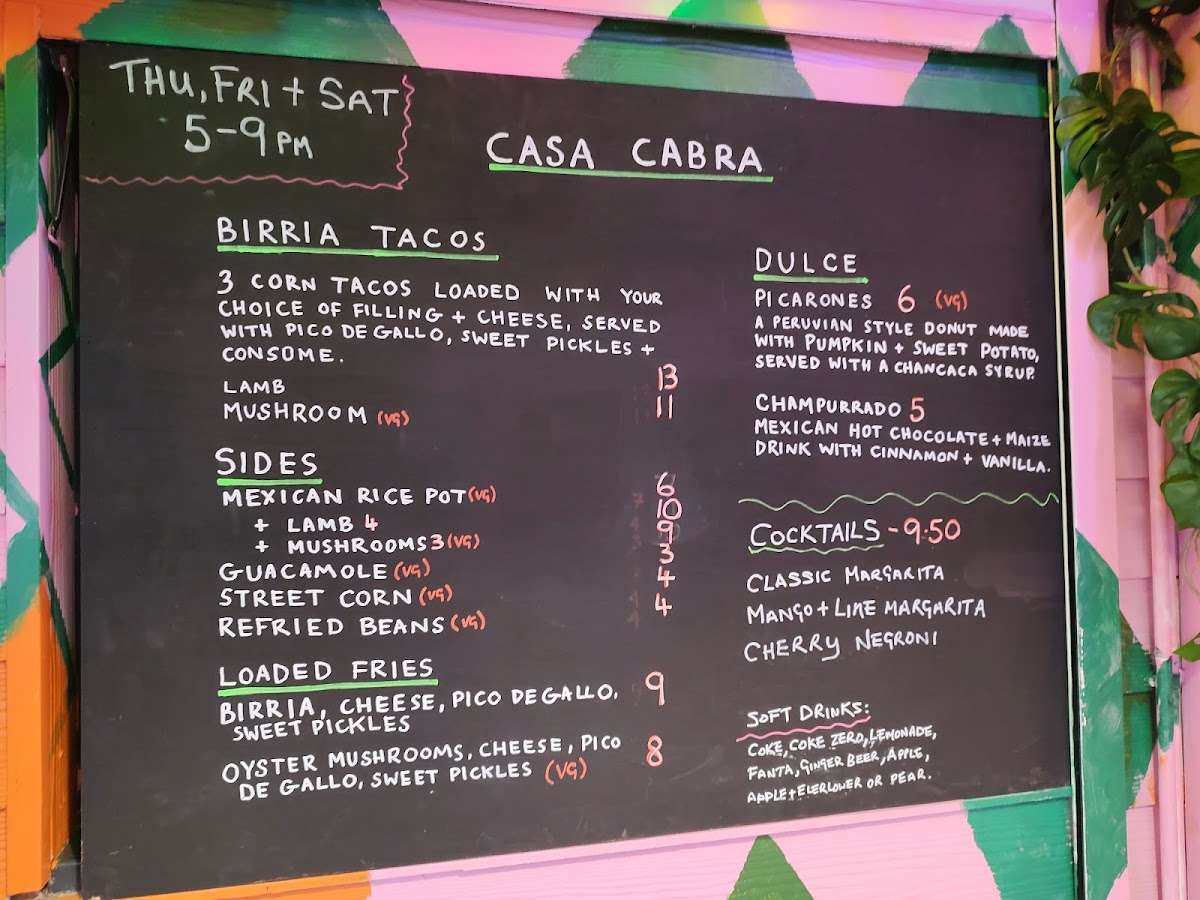 THU, FRI + SAT
5-9PM
CASA CABRA
BIRRIA TACOS
3 CORN TACOS LOADED WITH YOUR
CHOICE OF FILLING + CHEESE, SERVED
WITH PICO DE GALLO, SWEET PICKLES +
CONSOME.
LAMB 13
MUSHROOM (VG) 11
SIDES
MEXICAN RICE POT (VG) 6
+ LAMB 4 10
+ MUSHROOMS 3 (VG) 9
GUACAMOLE (VG) 3
STREET CORN (VG) 4
REFRIED BEANS (VG) 4
LOADED FRIES
BIRRIA, CHEESE, PICO DE GALLO, 9
SWEET PICKLES
OYSTER MUSHROOMS, CHEESE, PICO 8
DE GALLO, SWEET PICKLES (VG)
DULCE
PICARONES 6 (VG)
A PERUVIAN STYLE DONUT MADE
WITH PUMPKIN + SWEET POTATO,
SERVED WITH A CHANCACA SYRUP.
CHAMPURRADO 5
MEXICAN HOT CHOCOLATE + MAIZE
DRINK WITH CINNAMON + VANILLA.
COCKTAILS - 9.50
CLASSIC MARGARITA
MANGO + LIME MARGARITA
CHERRY NEGRONI
SOFT DRINKS:
COKE, COKE ZERO, LEMONADE,
FANTA, GINGER BEER, APPLE,
APPLE + ELERLOWER OR PEAR.